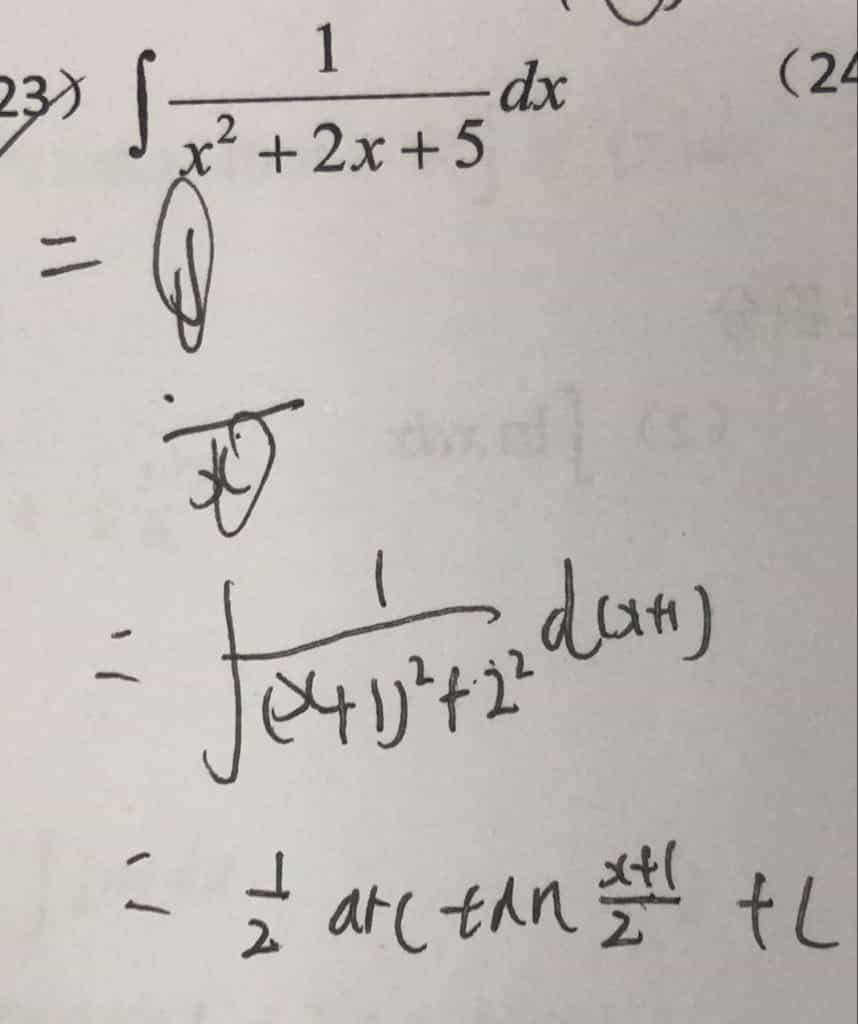 23) ∫ 1/(x² + 2x + 5) dx (24
=
= ∫ 1/((x+1)²+2²) d(x+1)
= 1/2 arctan (x+1)/2 + C